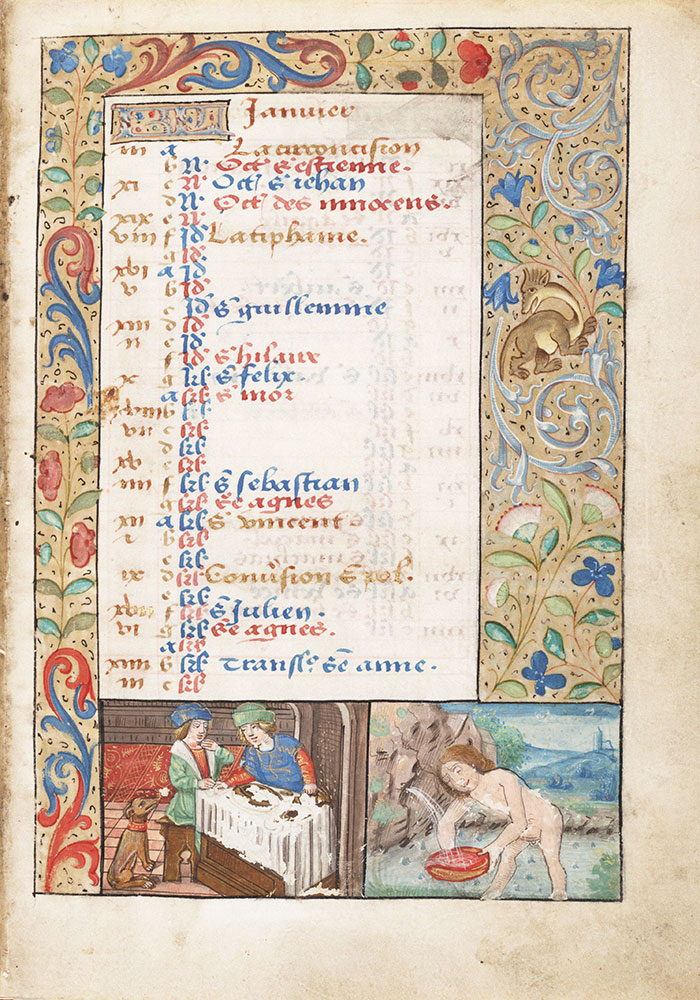 Janvier
iii a La circoncision
b N Oct s estienne.
xi c N Oct s iehan
d N Oct des innocens.
xix e N
viii f Id La tiphaine.
g Id
xvi a Id
v b Id
c Id S guillemme
xiii d Id
ii e Id
f Id S hilaux
x g kl S felix.
a kl S mor
xviii b kl
vii c kl
d kl
xv e kl
iiii f kl S sebastian
g kl Se agnes
xii a kl S vincent
i b kl
c kl
ix d kl Convsion S pol.
e kl
xvii f kl S Julien.
vi g kl Se agnes.
a kl
xiiii b kl Transl. Se anne.
iii c kl